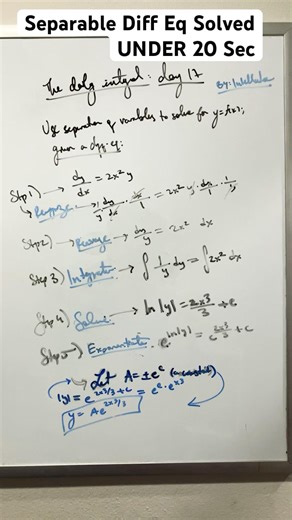 Separable Diff Eq Solved
UNDER 20 Sec
The daily integral: day 17
By: Intellecta
Use separation of variables to solve for y=A(x);
given a diff. eq:
Step 1) → dy/dx = 2x² y
↳ Rearrange → 1/y · dy/dx · dx/1 = 2x² y · dx/1 · 1/y
Step 2) → Rearrange → dy/y = 2x² dx
Step 3) Integration → ∫ 1/y dy = ∫ 2x² dx
Step 4) Solve → ln|y| = 2x³/3 + c
Step 5) Exponentiate: e^ln|y| = e^(2x³/3 + c)
→ Let A = ±e^c (a constant)
|y| = e^(2x³/3 + c) = e^c · e^x³
y = Ae^(2x³/3)